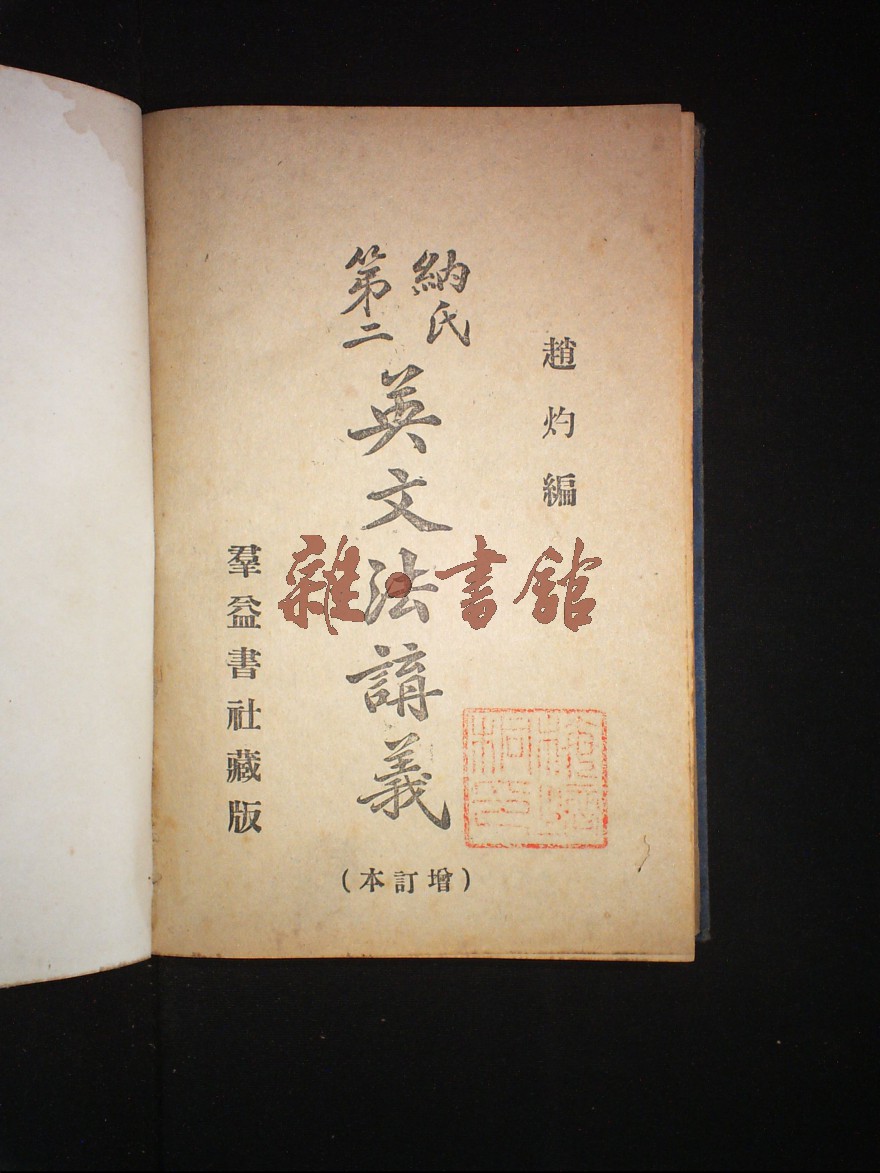 趙灼編
納氏
第二
英文法講義
(增訂本)
羣益書社藏版
雜·書館